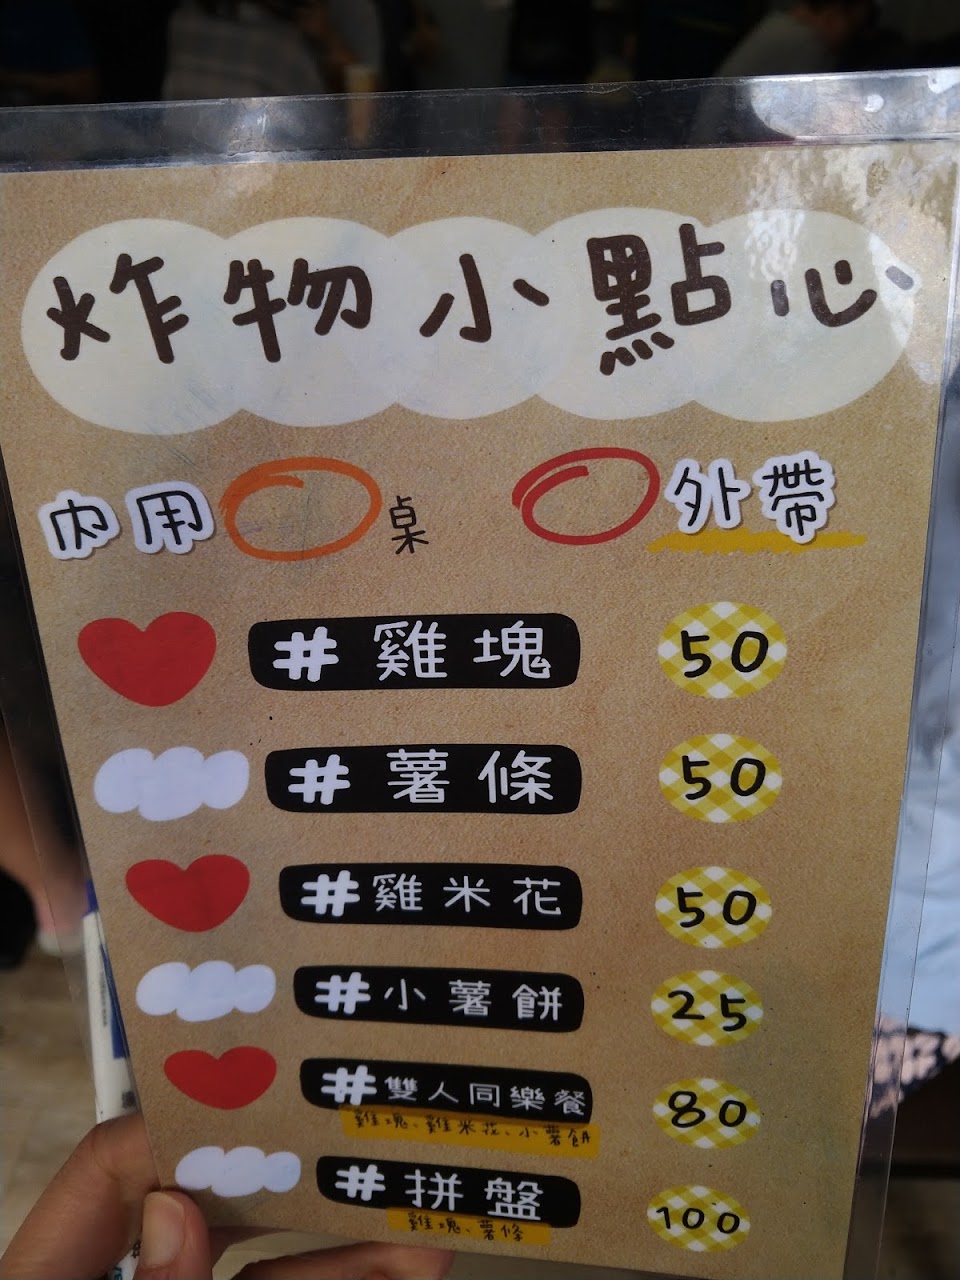 炸物小點心
內用 桌 外帶
#雞塊 50
#薯條 50
#雞米花 50
#小薯餅 25
#雙人同樂餐 80
雞塊、雞米花、小薯餅
#拼盤 100
雞塊、薯條